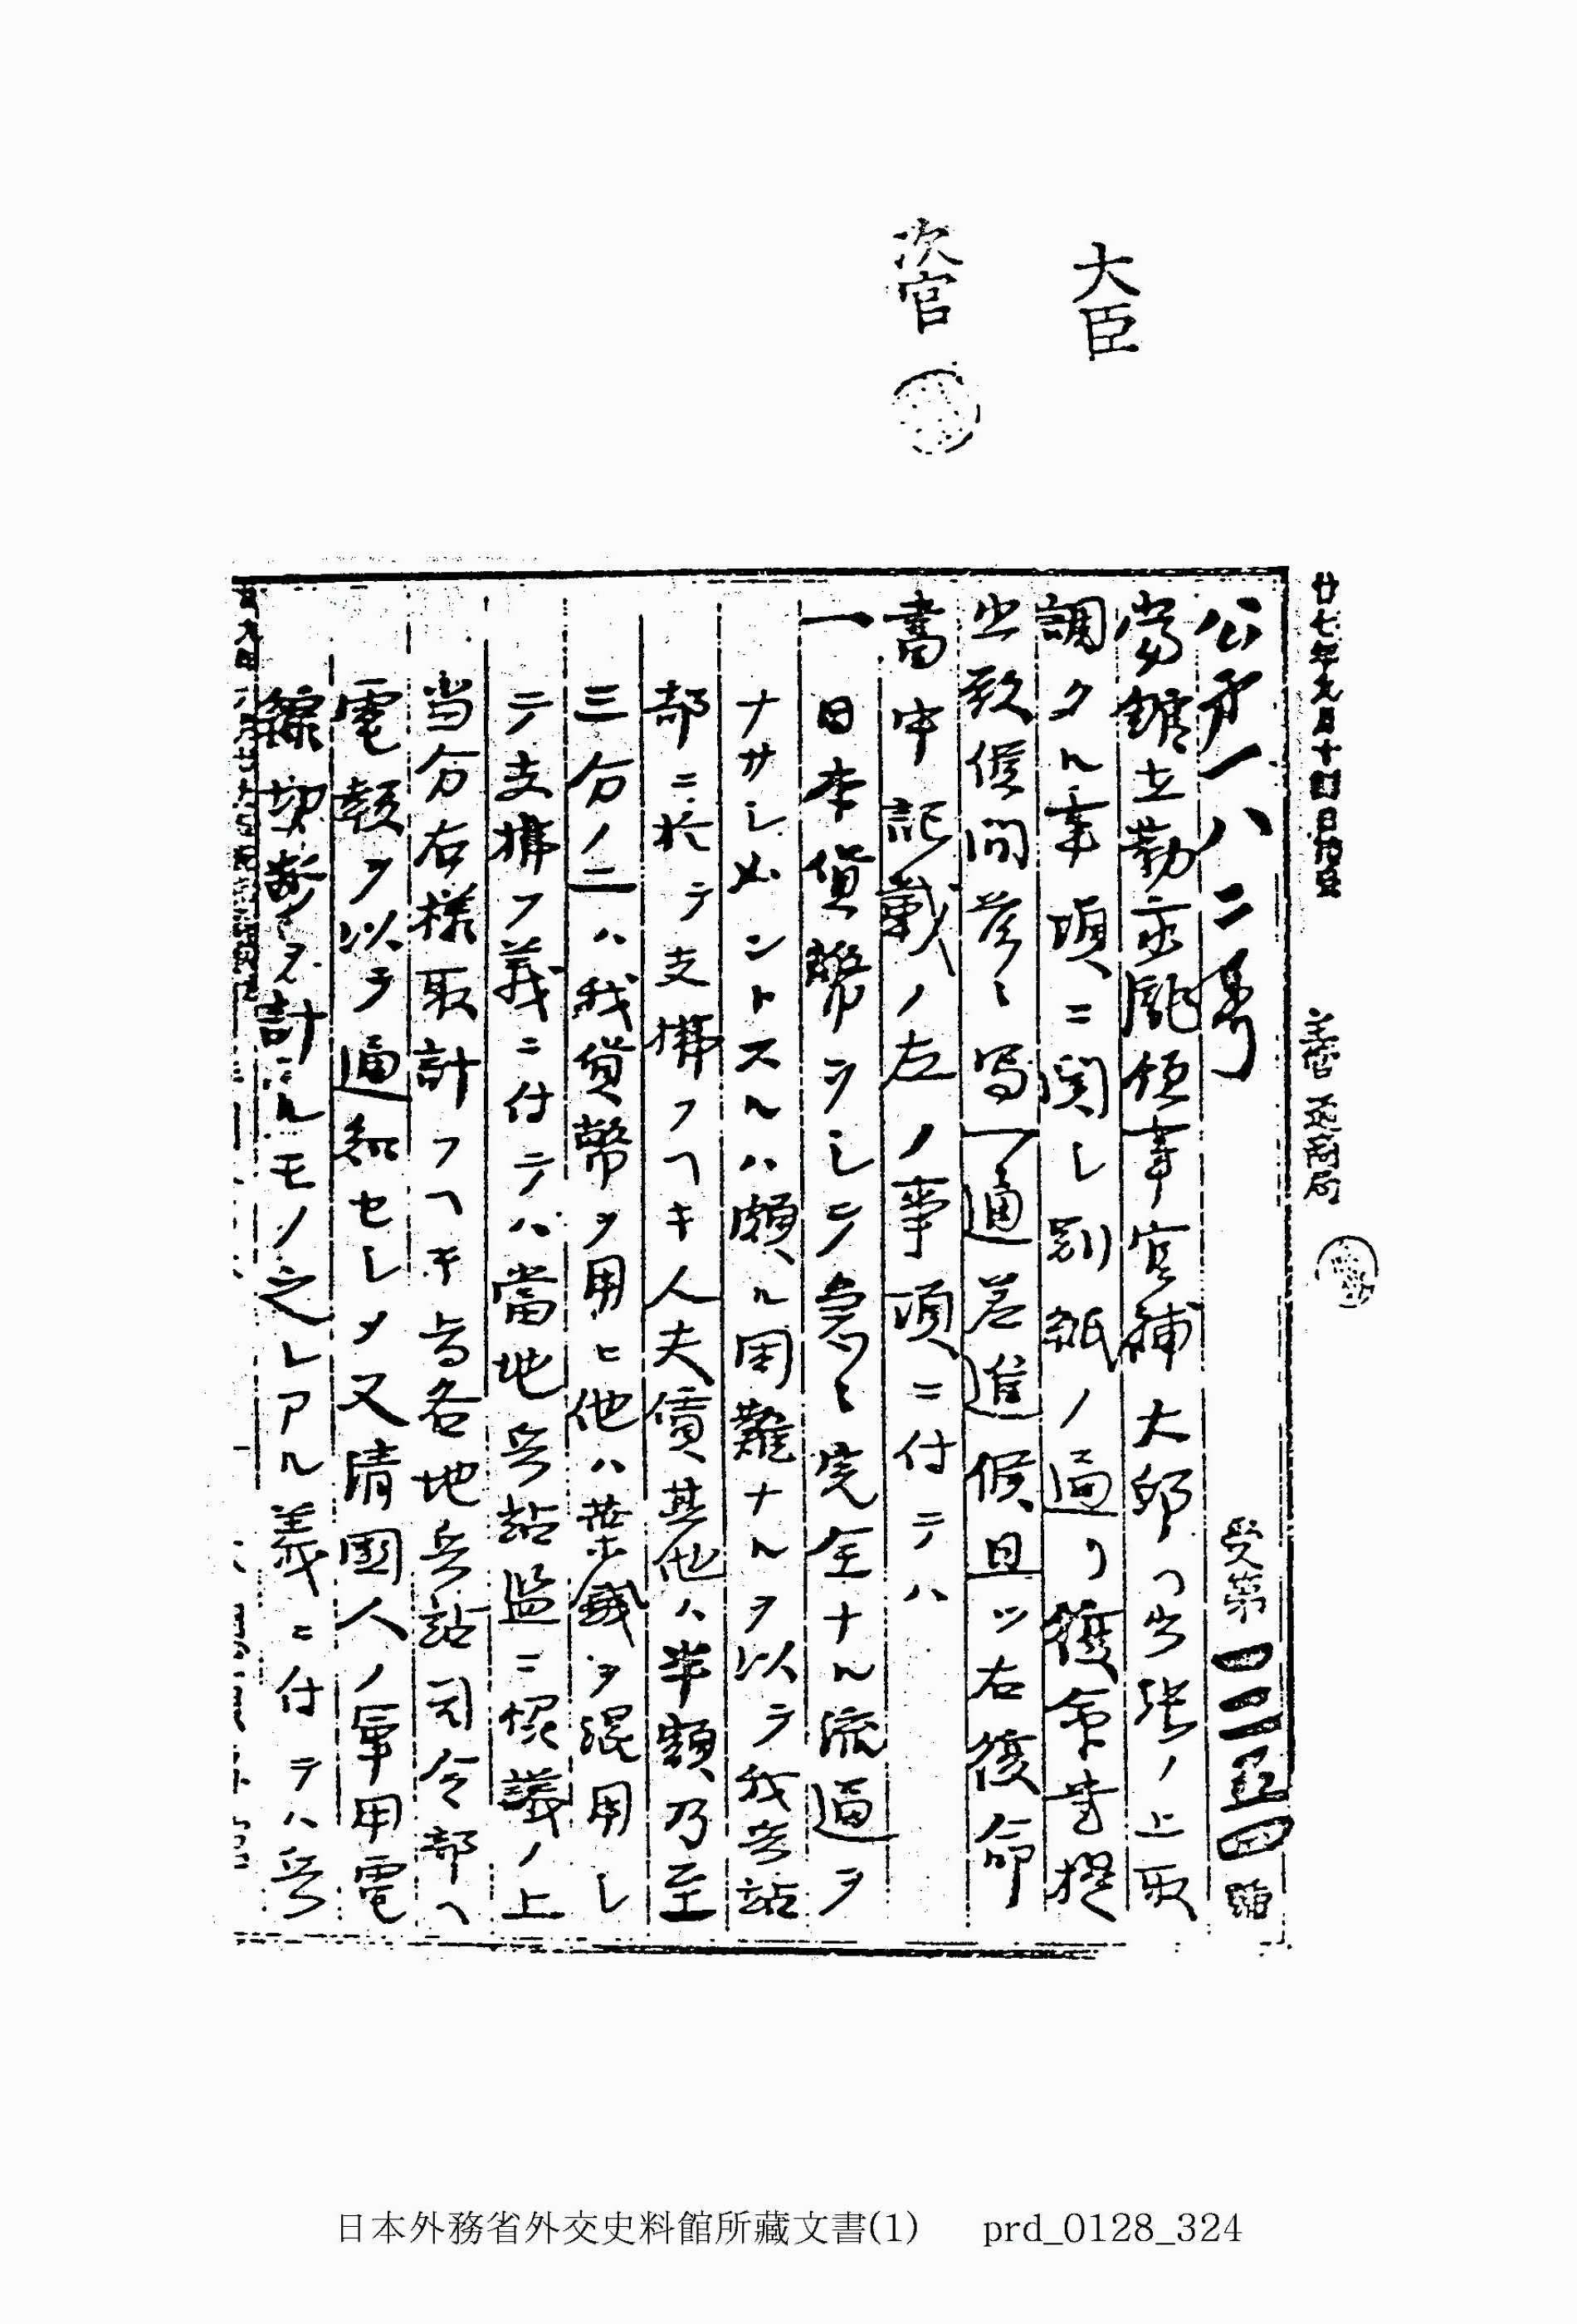 大臣
次官
廿七年九月十四日接受
主管 通商局
公第一八二号
受第一三五四
當館在勤永瀧領事官補大邱ヘ出張ノ上取
調タル事項ニ関シ別紙ノ通リ復命書提
出致候間茲ニ写一通差進候且ツ右復命
書中記載ノ左ノ事項ニ付テハ
一日本貨幣ヲシテ急々完全ナル流通ヲ
ナサシメントスルハ頗ル困難ナルヲ以テ我兵站
部ニ於テ支拂フヘキ人夫賃其他ハ半額乃至
三分ノ二ハ我貨幣ヲ用ヒ他ハ葉錢ヲ混用シ
テ支拂フ義ニ付テハ當地兵站監ニ協議ノ上
当分右樣取計フヘキ旨各地兵站司令部ヘ
電報ヲ以テ通知セシメ又清國人ノ軍用電
線切断ヲ計ルモノ之レアル義ニ付テハ兵
日本外務省外交史料館所藏文書(1) prd_0128_324